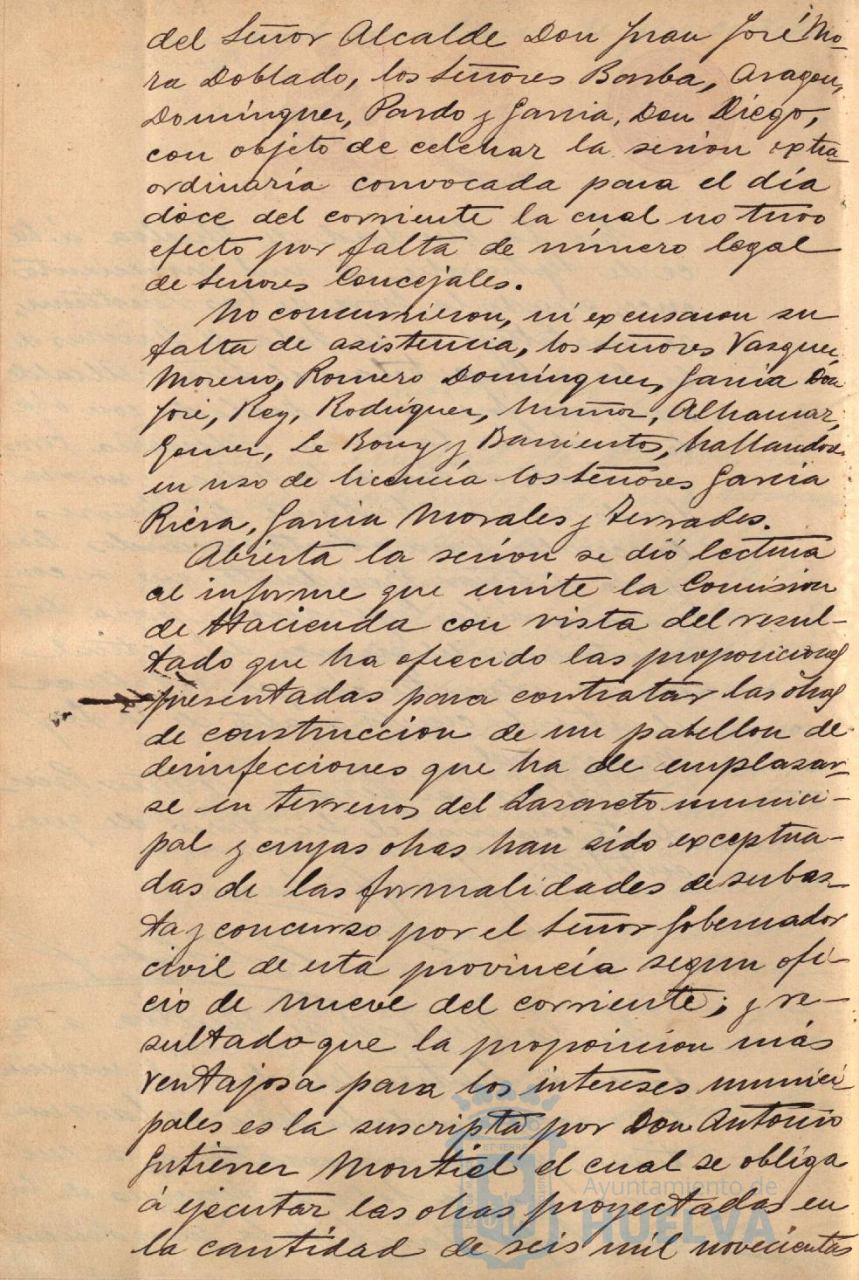 del Señor Alcalde Don Juan José Mo-
ra Doblado, los Señores Barba, Aragon,
Dominguez, Pardo y Garcia, Don Diego,
con objeto de celebrar la sesion extra-
ordinaria convocada para el día
doce del corriente la cual no tuvo
efecto por falta de número legal
de Señores Concejales.
No concurrieron, ni excusaron su
falta de asistencia, los Señores Vazquez,
Moreno, Romero Domínguez, Garcia Don
José, Rey, Rodríguez, Muñoz, Alhamar,
Gomez, Le Bouy y Barrientos, hallandose
en uso de licencia los Señores Garcia
Riera, Garcia Morales y Terrades.
Abierta la sesion se dió lectura
al informe que emite la Comision
de Hacienda con vista del resul-
tado que ha ofrecido las proposiciones
presentadas para contratar las obras
de construccion de un pabellon de
desinfecciones que ha de emplazar-
se en terrenos del Lazareto munici-
pal y cuyas obras han sido exceptua-
das de las formalidades de subas-
ta y concurso por el Señor Gobernador
civil de esta provincia segun ofi-
cio de nueve del corriente; y re-
sultado que la proposicion más
ventajosa para los intereses munici-
pales es la suscripta por Don Antonio
Gutierrez Montiel el cual se obliga
á ejecutar las obras proyectadas en
la cantidad de seis mil novecientas
Ayuntamiento de
HUELVA